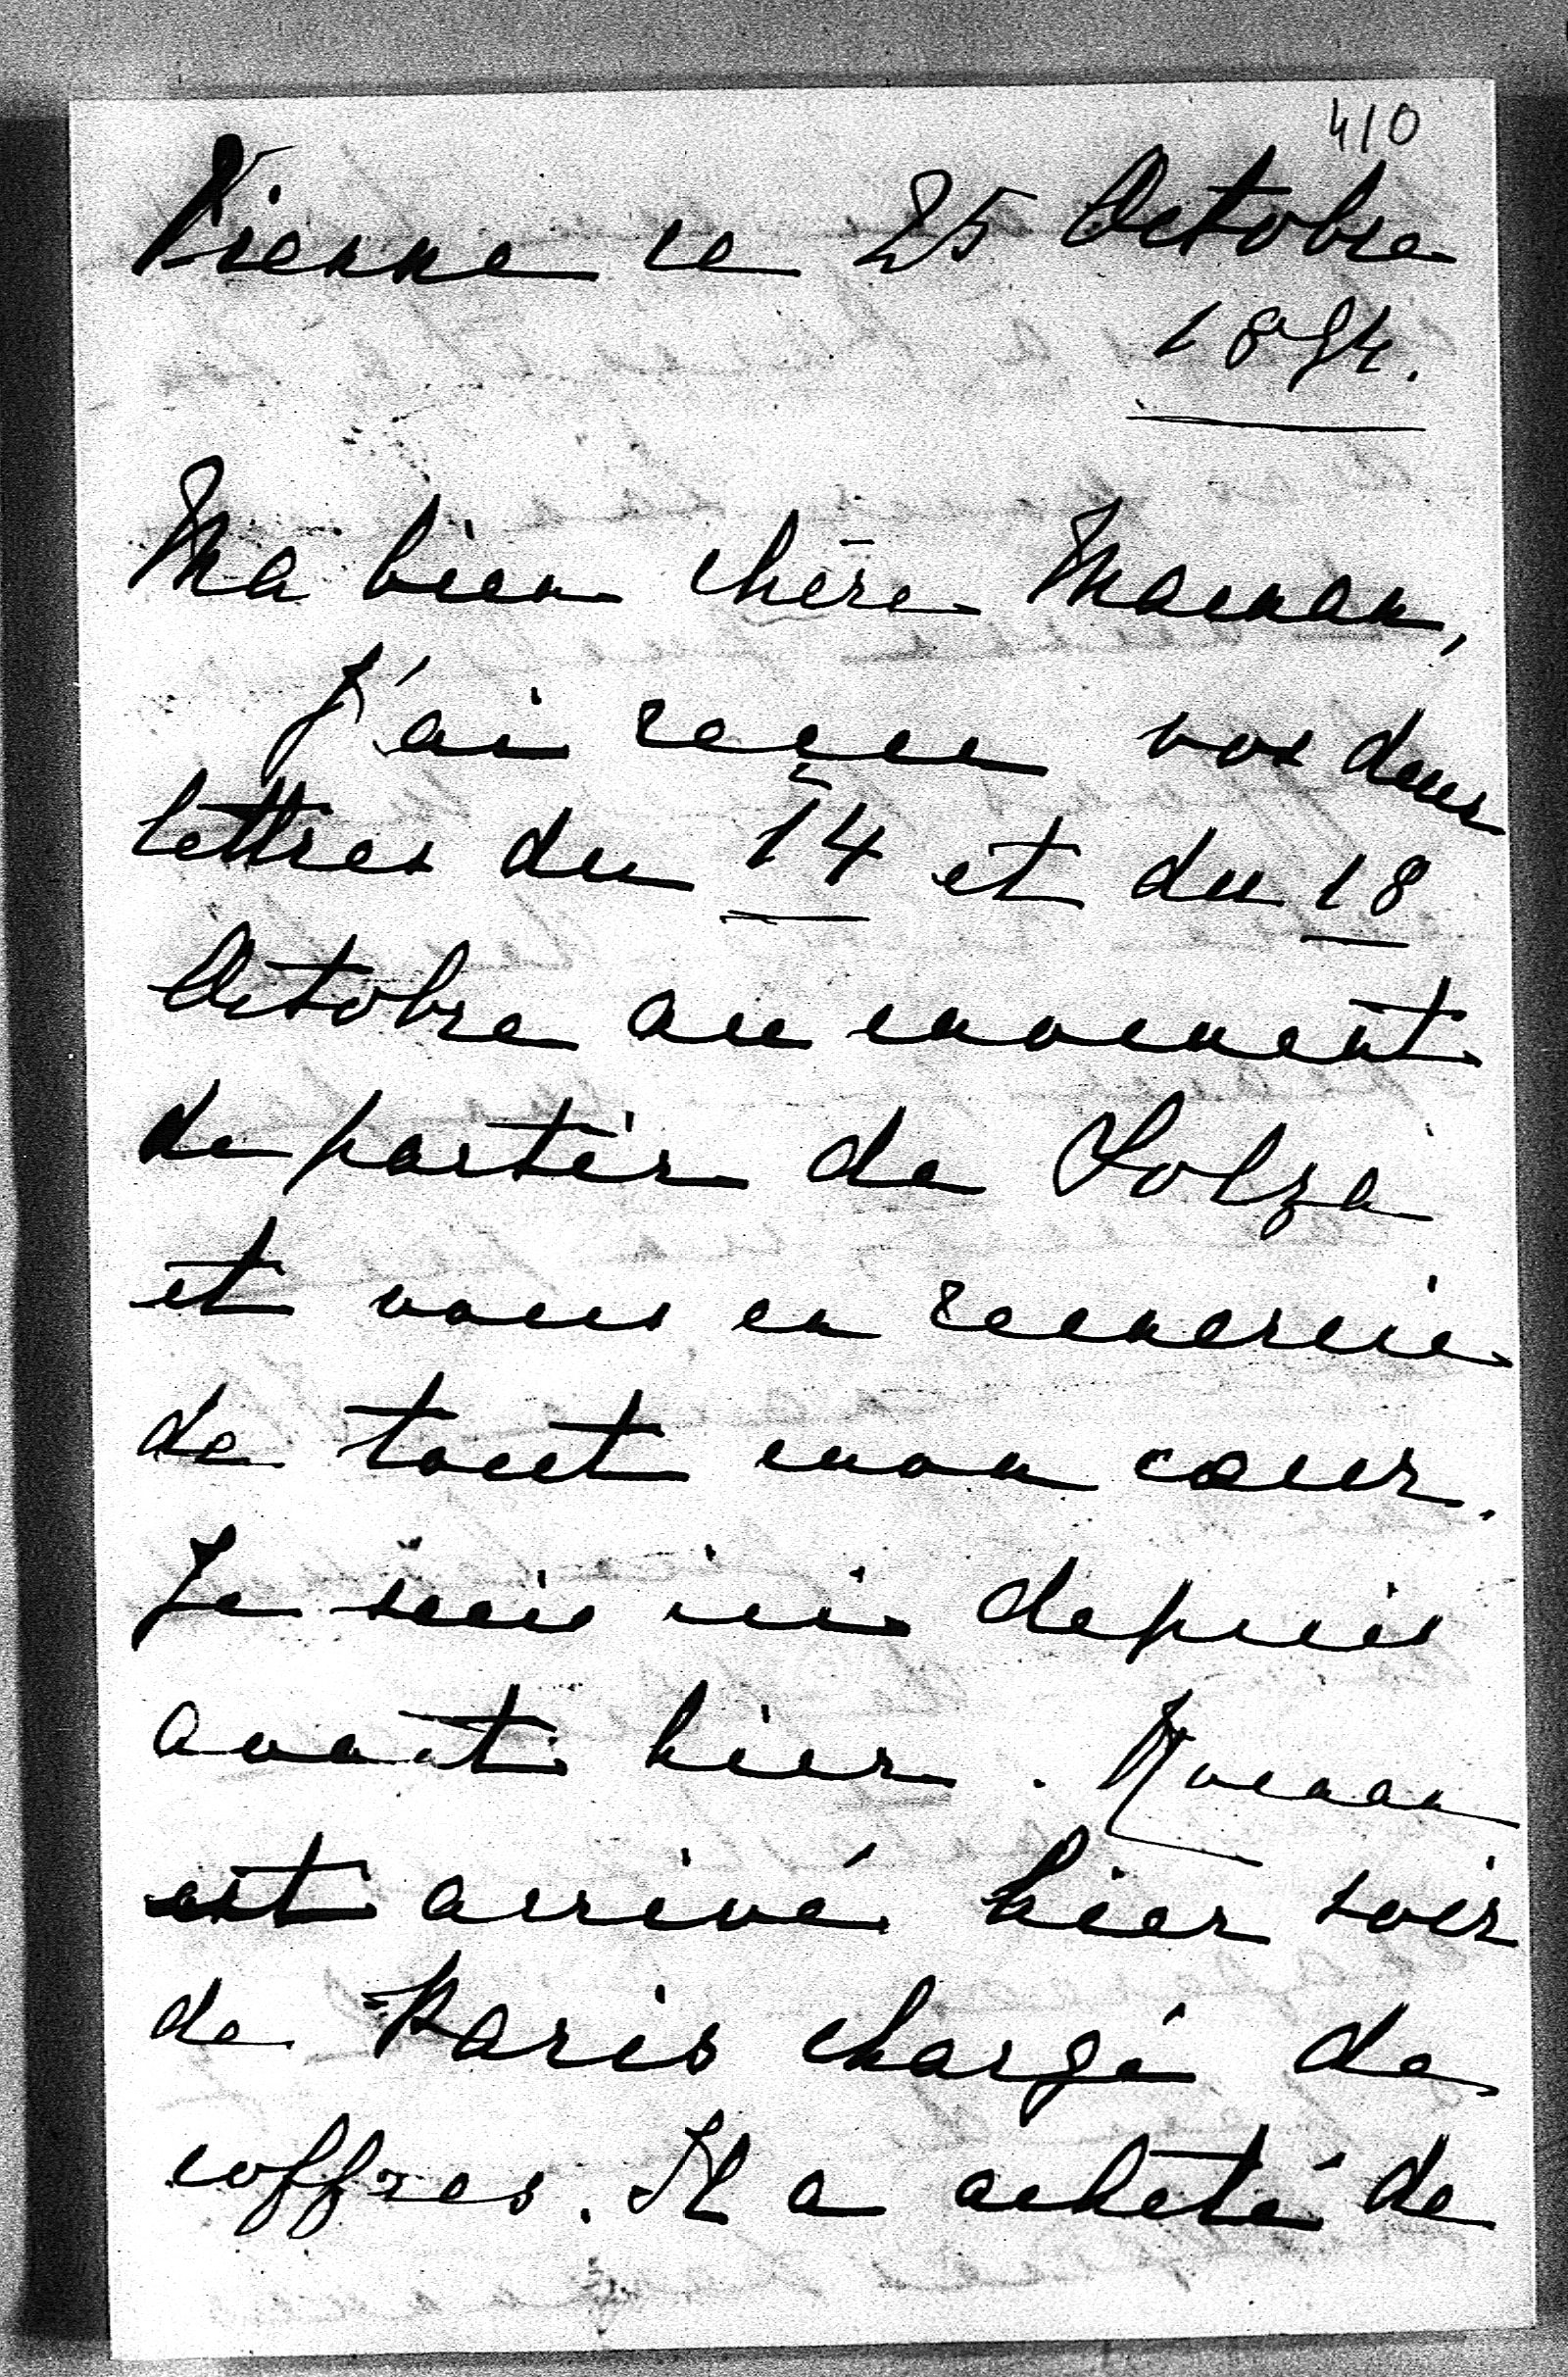 410
Vienne ce 25 Octobre
1894.
Ma bien chère Maman,
J'ai reçu vos deux
lettres du 14 et du 18
Octobre au moment
de partir de Solza
et vous en remercie
de tout mon cœur.
Je suis ici depuis
avant hier. Roman
est arrivé hier soir
de Paris chargé de
coffres. Il a acheté de